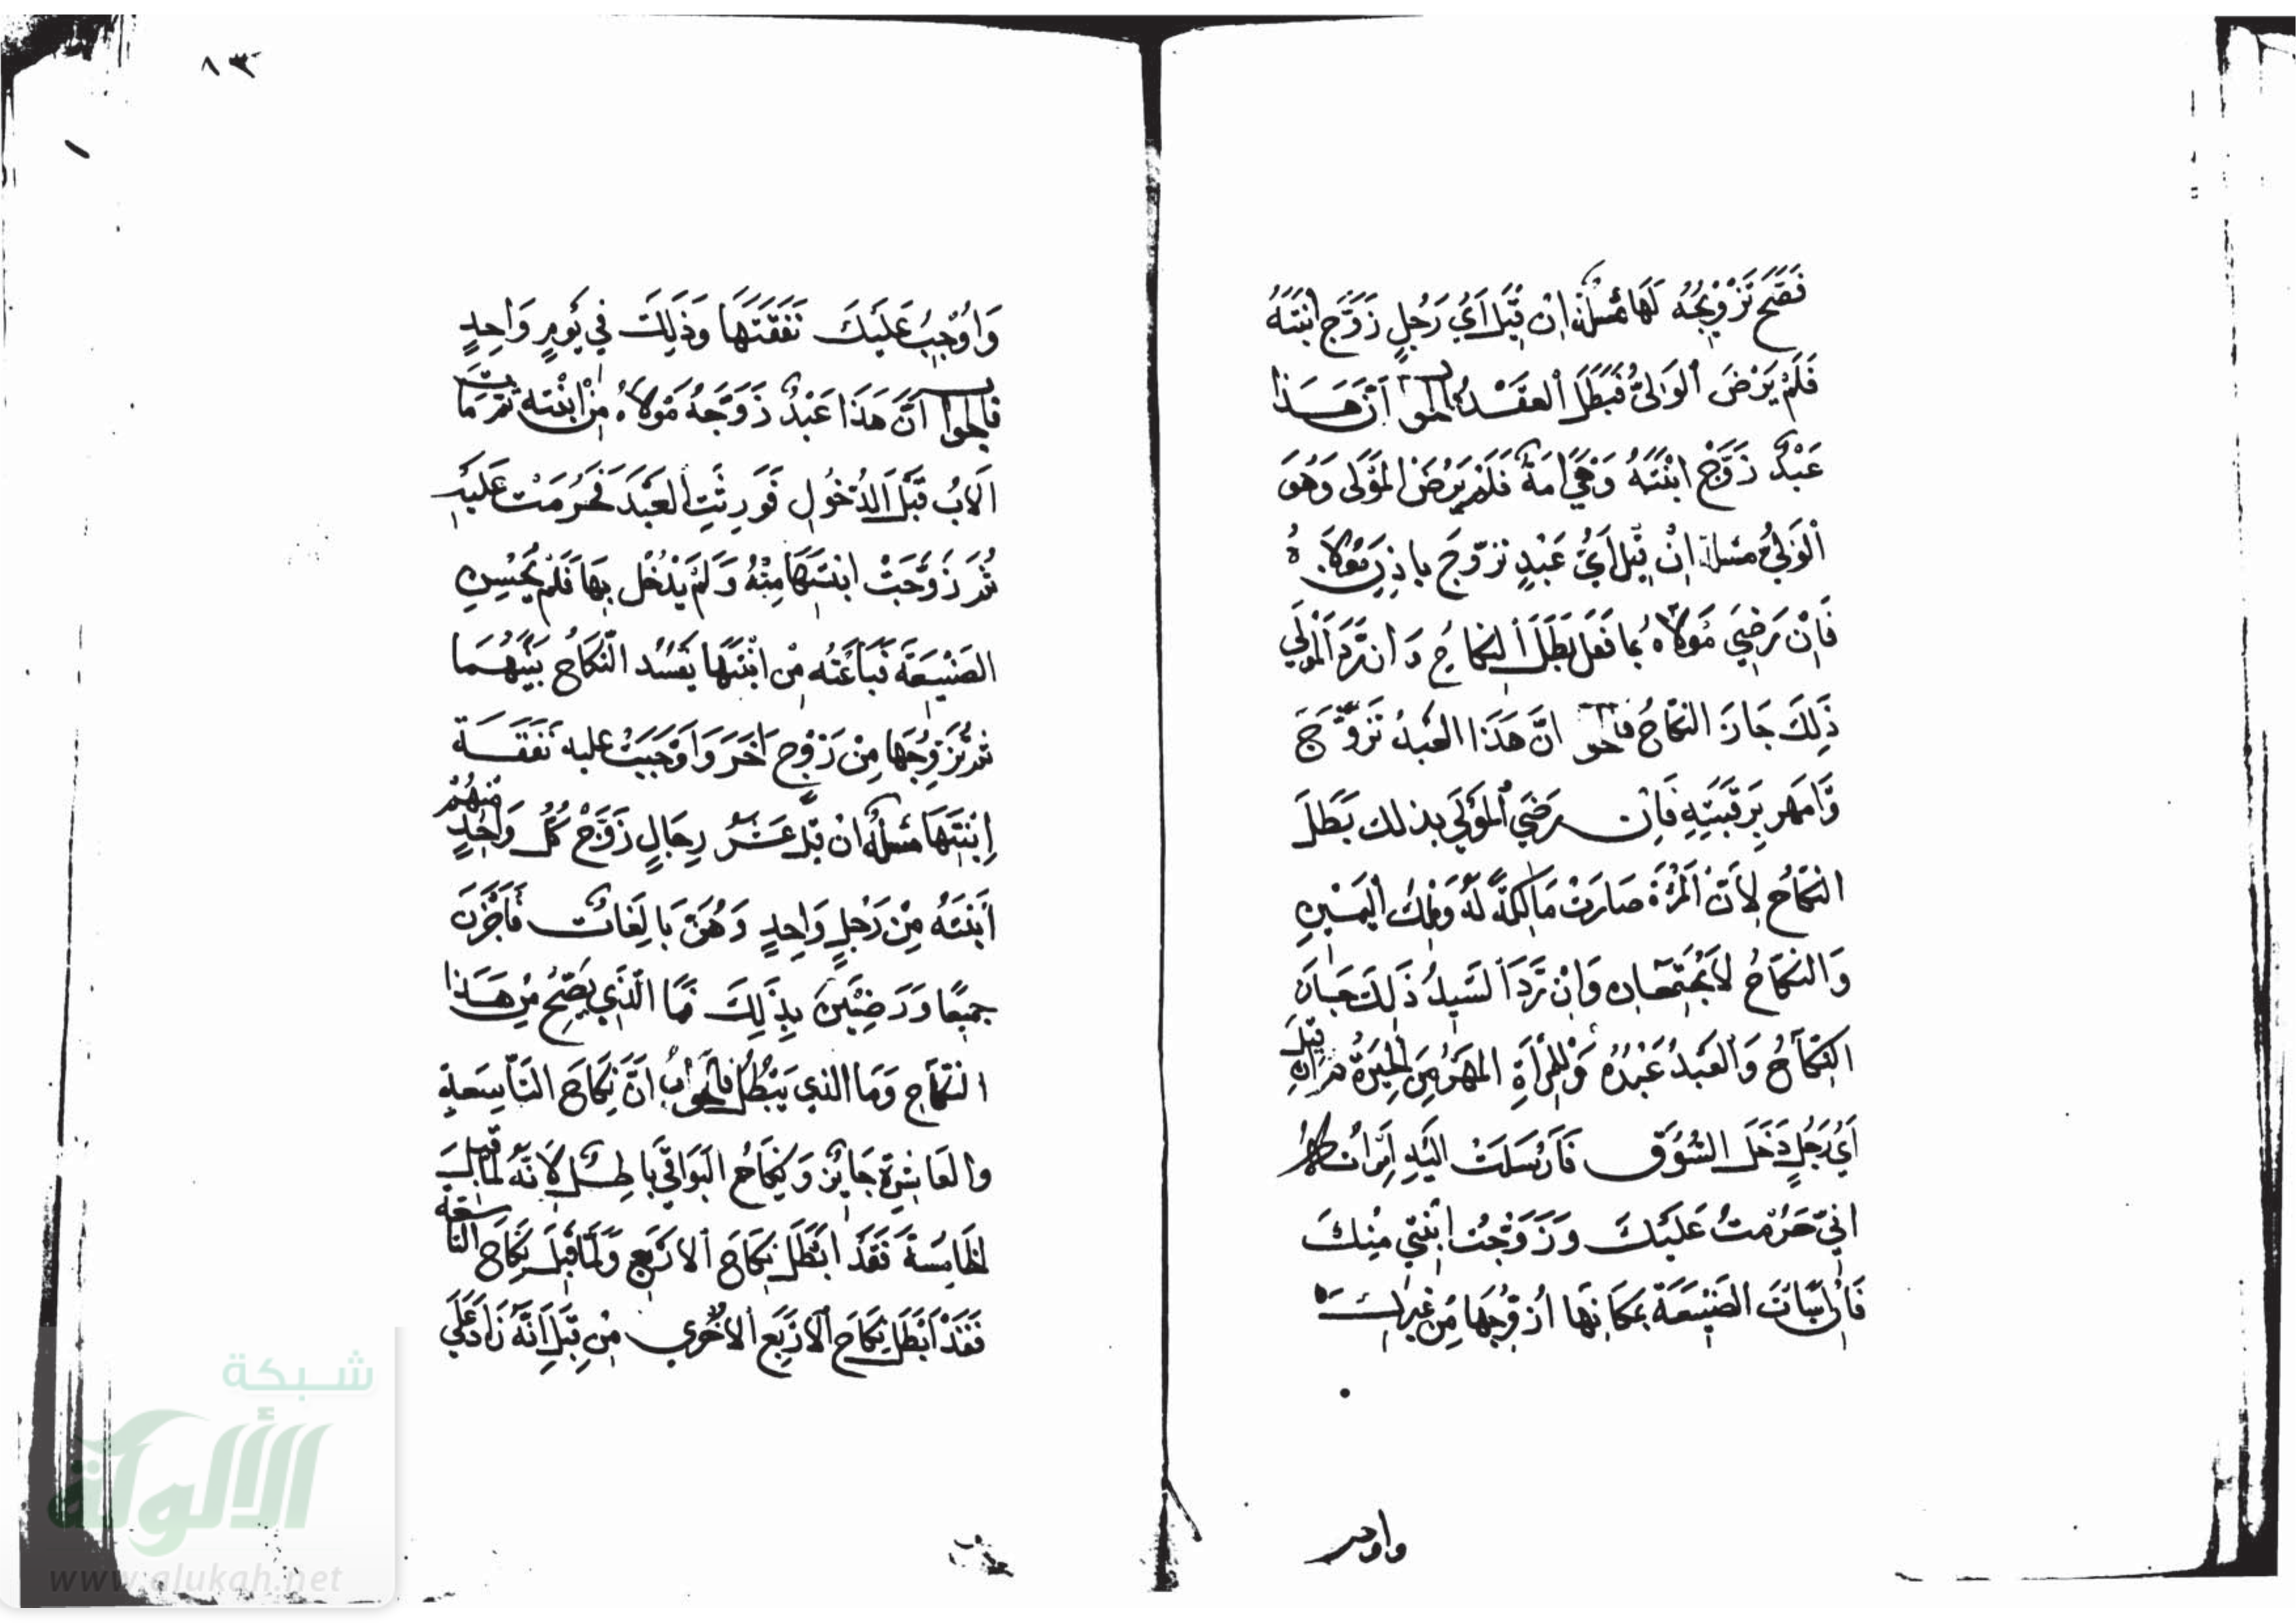 فَصَحَّ تَزْوِيجُهُ لَهَا مسئلة اِن قِيلَ اَيُّ رَجُلٍ زَوَّجَ ابْنَتَهُ
فَلَمْ يَرْضَ الْوَلِيُّ فَبَطَلَ الْعَقْدُ فالجواب اَنَّ هَذَا
عَبْدٌ زَوَّجَ ابْنَتَهُ وَهِيَ اَمَةٌ فَلَمْ يَرْضَ الْمَوْلَى وَهُوَ
الْوَلِيُّ مسئلة اِنْ قِيلَ اَيُّ عَبْدٍ تزوّجَ باذنِ مَوْلَاهُ
فَاِنْ رَضِيَ مَوْلَاهُ بما فَعَلَ بَطَلَ النِكاحُ وَان رَدَّ الْمَوْلَى
ذَلِكَ جَازَ النكاحُ فالجواب اِنَّ هَذَا الْعَبْدُ تَزَوَّجَ
وَامهر برَقَبَتِهِ فَاِنْ رَضِيَ الْمَوْلَى بذلك بَطَلَ
النكَاحُ لِاَنَّ الْمَرْءَةَ صَارَتْ مَالِكَةً لَهُ وَمِلْكُ الْيَمِينِ
وَالنكَاحُ لَا يَجْتَمِعَانِ وَاِنْ رَدَّ السَّيِّدُ ذَلِكَ جَازَ
النِّكَاحُ وَالْعَبْدُ عَبْدُهُ وَلِلْمَرْأَةِ المَهْرُ مِنَ الحِيرَةُ اِن قِيلَ
اَيُّ رَجُلٍ دَخَلَ السُّوقَ فَاَرْسَلَتْ اِلَيْهِ اِمْرَاَتُهُ
اِنِّي حَرُمْتُ عَلَيْكَ وَزَوَّجْتُ ابْنَتِي مِنْكَ
فَاِنْ اَسَاتَ الصَّنِيعَةَ بمَكَانِهَا اُزَوِّجُهَا مِن غَيْرِكَ
واوجب
٨٣
وَاُوْجِبُ عَلَيْكَ نَفَقَتَهَا وَذَلِكَ في يَوْمٍ وَاحِدٍ
فالجواب اَنَّ هَذَا عَبْدٌ زَوَّجَهُ مَوْلَاهُ مِنْ ابْنَتِهِ ثُمَّ مَاتَ
الْاَبُ قَبْلَ الدُّخُولِ فَوَرِثَتِ الْعَبْدَ فَحَرُمَتْ عَلَيْهِ
ثُمَّ زَوَّجَتْ ابْنَتَهَا مِنْهُ وَلَمْ يَدْخُلْ بِهَا فَلَمْ يُحْسِنِ
الصَنِيعَةَ فَبَاعَتْهُ مِن ابْنَتِهَا يَفْسُدُ النِّكَاحُ بَيْنَهُمَا
ثم تُزَوِّجُهَا مِنْ زَوْجٍ اَخَرَ وَاَوْجَبَتْ عليه نَفَقَةَ
اِبْنَتِهَا مسئلة اِنْ قِيلَ عَشْرُ رِجَالٍ زَوَّجَ كُلُّ وَاحِدٍ مِنْهُمْ
اَبْنَتَهُ مِنْ رَجُلٍ وَاحِدٍ وَهُنَّ بَالِغَاتٌ فَاَجَزْنَ
جميعًا وَرَضِيْنَ بِذَلِكَ فَمَا الَّذِي يَصِحُّ مِنْ هَذَا
النكَاحِ وَمَا الذي يَبْطُلُ فالجوابُ اَنَّ نِكَاحَ التَاسِعَةِ
والعَاشِرَةِ جَائِزٌ وَنِكَاحُ الْبَوَاقِي بَاطِلٌ لِاَنَّهُ لَمَّا قَبِلَ
الخَامِسَةَ فَقَدْ اَبْطَلَ نِكَاحَ الْاَرْبَعِ وَلَمَّا قَبِلَ نِكَاحَ التَاسِعَةِ
فَقَدْ اَبْطَلَ نِكَاحَ الْاَرْبَعِ الْاُخْرَي مِنْ قِبَلِ اَنَّهُ زَادَ عَلَي
شبكة
الألوكة
www.alukah.net